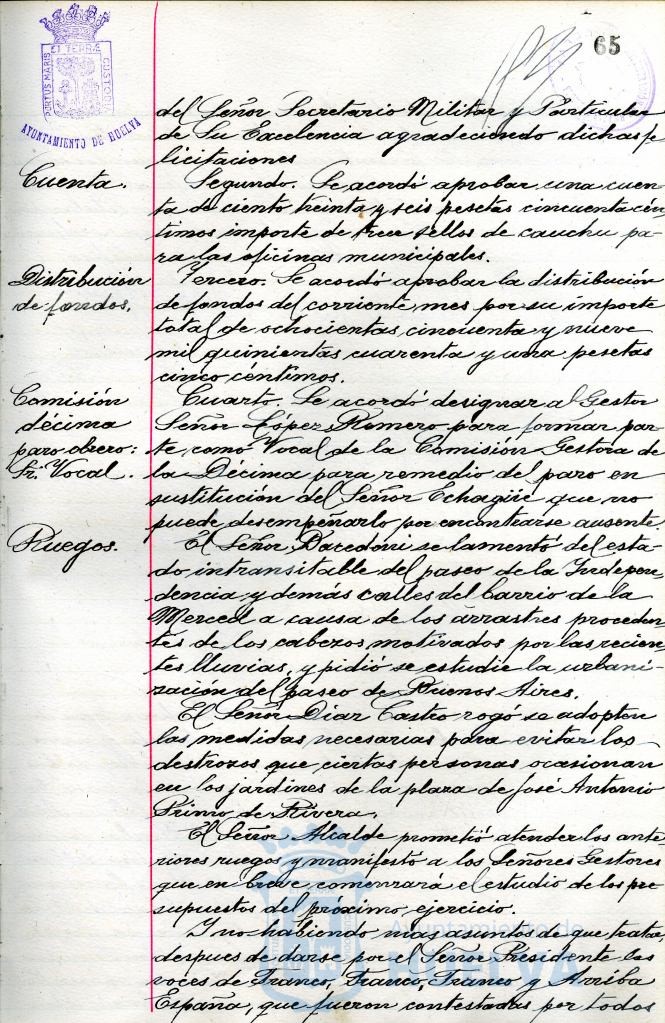 65
PORTUS MARIS ET TERRÆ CUSTODIA
AYUNTAMIENTO DE HUELVA
del Señor Secretario Militar y Particular
de Su Excelencia agradeciendo dichas fe
licitaciones
Cuenta.
Segundo. Se acordó aprobar una cuen
ta de ciento treinta y seis pesetas cincuenta cén
timos importe de trece sellos de cauchu pa
ra las oficinas municipales.
Distribución
de fondos.
Tercero. Se acordó aprobar la distribución
de fondos del corriente mes por su importe
total de ochocientas cincuenta y nueve
mil quinientas cuarenta y una pesetas
cinco céntimos.
Comisión
décima
paro obrero:
Sr. Vocal.
Cuarto. Se acordó designar al Gestor
Señor López Romero para formar par
te como Vocal de la Comisión Gestora de
la Décima para remedio del paro en
sustitución del Señor Echagüe que no
puede desempeñarlo por encontrarse ausente.
Ruegos.
El Señor se lamentó del esta
do intransitable del paseo de la Indepen
dencia y demás calles del barrio de la
Merced a causa de los arrastres proceden
tes de los cabezos motivados por las recien
tes lluvias, y pidió se estudie la urbani
zación del paseo de Buenos Aires.
El Señor Díaz Castro rogó se adopten
las medidas necesarias para evitar los
destrozos que ciertas personas ocasionan
en los jardines de la plaza de José Antonio
Primo de Rivera.
El Señor Alcalde prometió atender los ante
riores ruegos y manifestó a los Señores Gestores
que en breve comenzará el estudio de los pre
supuestos del próximo ejercicio.
Y no habiendo mas asuntos de que tratar,
despues de darse por el Señor Presidente las
voces de Franco, Franco, Franco y Arriba
España, que fueron contestadas por todos
Ayuntamiento de
HUELVA